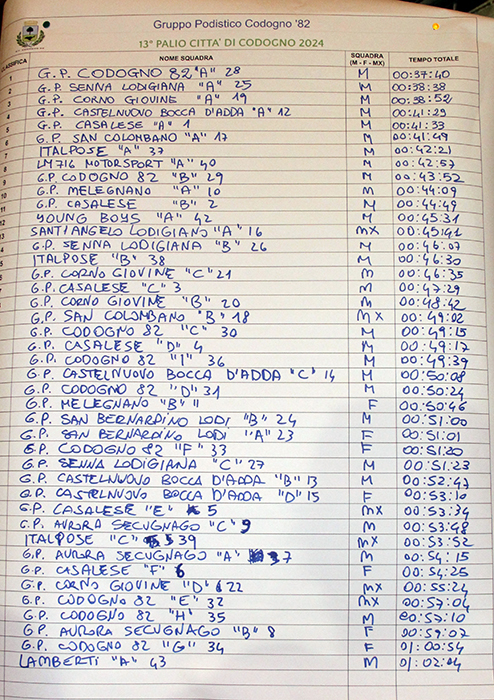 Gruppo Podistico Codogno '82
13° PALIO CITTA' DI CODOGNO 2024
CLASSIFICA NOME SQUADRA SQUADRA (M - F - MX) TEMPO TOTALE
G.P. CODOGNO 82 "A" 28 M 00:37:40
2 G.P. SENNA LODIGIANA "A" 25 M 00:38:38
3 G.P. CORNO GIOVINE "A" 19 M 00:38:52
4 G.P. CASTELNUOVO BOCCA D'ADDA "A" 12 M 00:41:29
5 G.P. CASALESE "A" 1 M 00:41:33
6 G.P. SAN COLOMBANO "A" 17 M 00:41:49
7 ITALPOSE "A" 37 M 00:42:21
8 LM716 MOTORSPORT "A" 40 M 00:42:57
9 G.P. CODOGNO 82 "B" 29 M 00:43:52
10 G.P. MELEGNANO "A" 10 M 00:44:09
11 G.P. CASALESE "B" 2 M 00:44:49
12 YOUNG BOYS "A" 42 M 00:45:31
13 SANT'ANGELO LODIGIANO "A" 16 MX 00:45:41
G.P. SENNA LODIGIANA "B" 26 M 00:46:07
ITALPOSE "B" 38 M 00:46:30
G.P. CORNO GIOVINE "C" 21 M 00:46:35
G.P. CASALESE "C" 3 M 00:47:29
G.P. CORNO GIOVINE "B" 20 M 00:48:42
G.P. SAN COLOMBANO "B" 18 MX 00:49:02
G.P. CODOGNO 82 "C" 30 M 00:49:15
G.P. CASALESE "D" 4 M 00:49:17
G.P. CODOGNO 82 "I" 36 M 00:49:39
G.P. CASTELNUOVO BOCCA D'ADDA "C" 14 M 00:50:08
G.P. CODOGNO 82 "D" 31 M 00:50:24
G.P. MELEGNANO "B" 11 F 00:50:46
G.P. SAN BERNARDINO LODI "B" 24 M 00:51:00
G.P. SAN BERNARDINO LODI "A" 23 F 00:51:01
G.P. CODOGNO 82 "F" 33 F 00:51:20
G.P. SENNA LODIGIANA "C" 27 M 00:51:23
G.P. CASTELNUOVO BOCCA D'ADDA "B" 13 M 00:52:47
G.P. CASTELNUOVO BOCCA D'ADDA "D" 15 F 00:53:10
G.P. CASALESE "E" 5 MX 00:53:34
G.P. AURORA SECUGNAGO "C" 9 M 00:53:48
ITALPOSE "C" 39 MX 00:53:52
G.P. AURORA SECUGNAGO "A" 7 M 00:54:15
G.P. CASALESE "F" 6 F 00:54:25
G.P. CORNO GIOVINE "D" 22 MX 00:55:24
G.P. CODOGNO 82 "E" 32 MX 00:57:04
G.P. CODOGNO 82 "H" 35 M 00:57:10
G.P. AURORA SECUGNAGO "B" 8 F 00:59:07
G.P. CODOGNO 82 "G" 34 F 01:00:54
LAMBERTI "A" 43 M 01:02:04